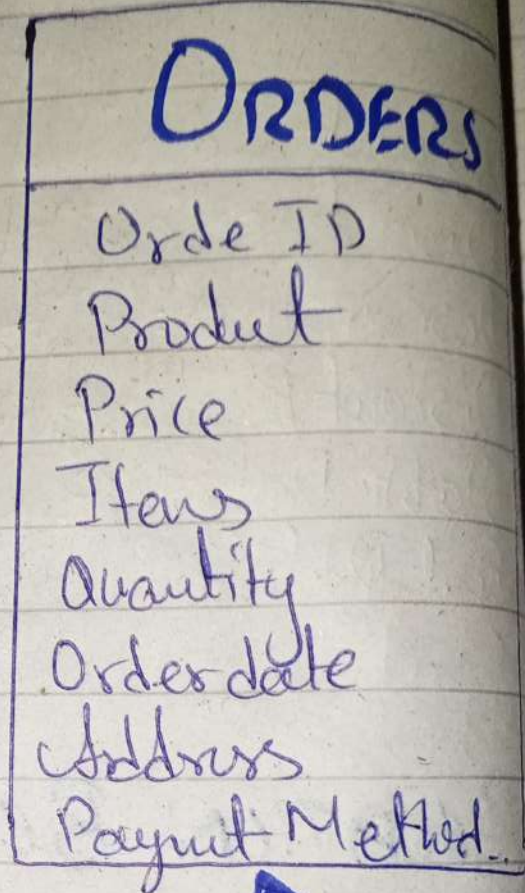 ORDERS
Orde ID
Product
Price
Items
Quantity
Orderdate
Address
Paymt Method.